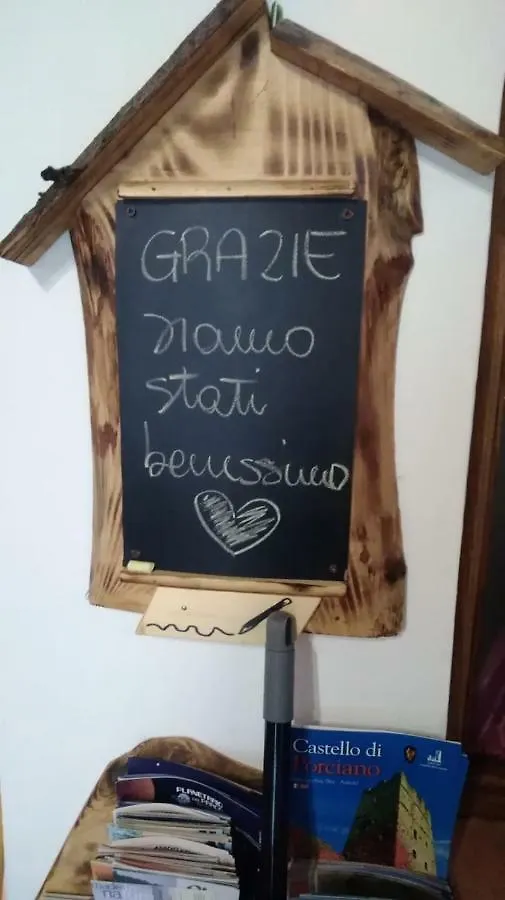 GRAZIE
siamo
stati
benissimo
Castello di
Porciano
PLANETARIO
DEL PARCO